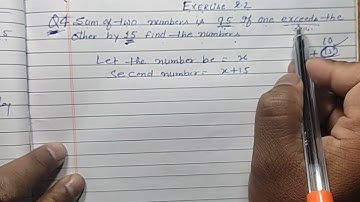 EXERCISE 2.2
Q4 Sum of two numbers is 95 If one exceeds the
other by 15 find the numbers.
10
Let the number be = x
Second number = x+15